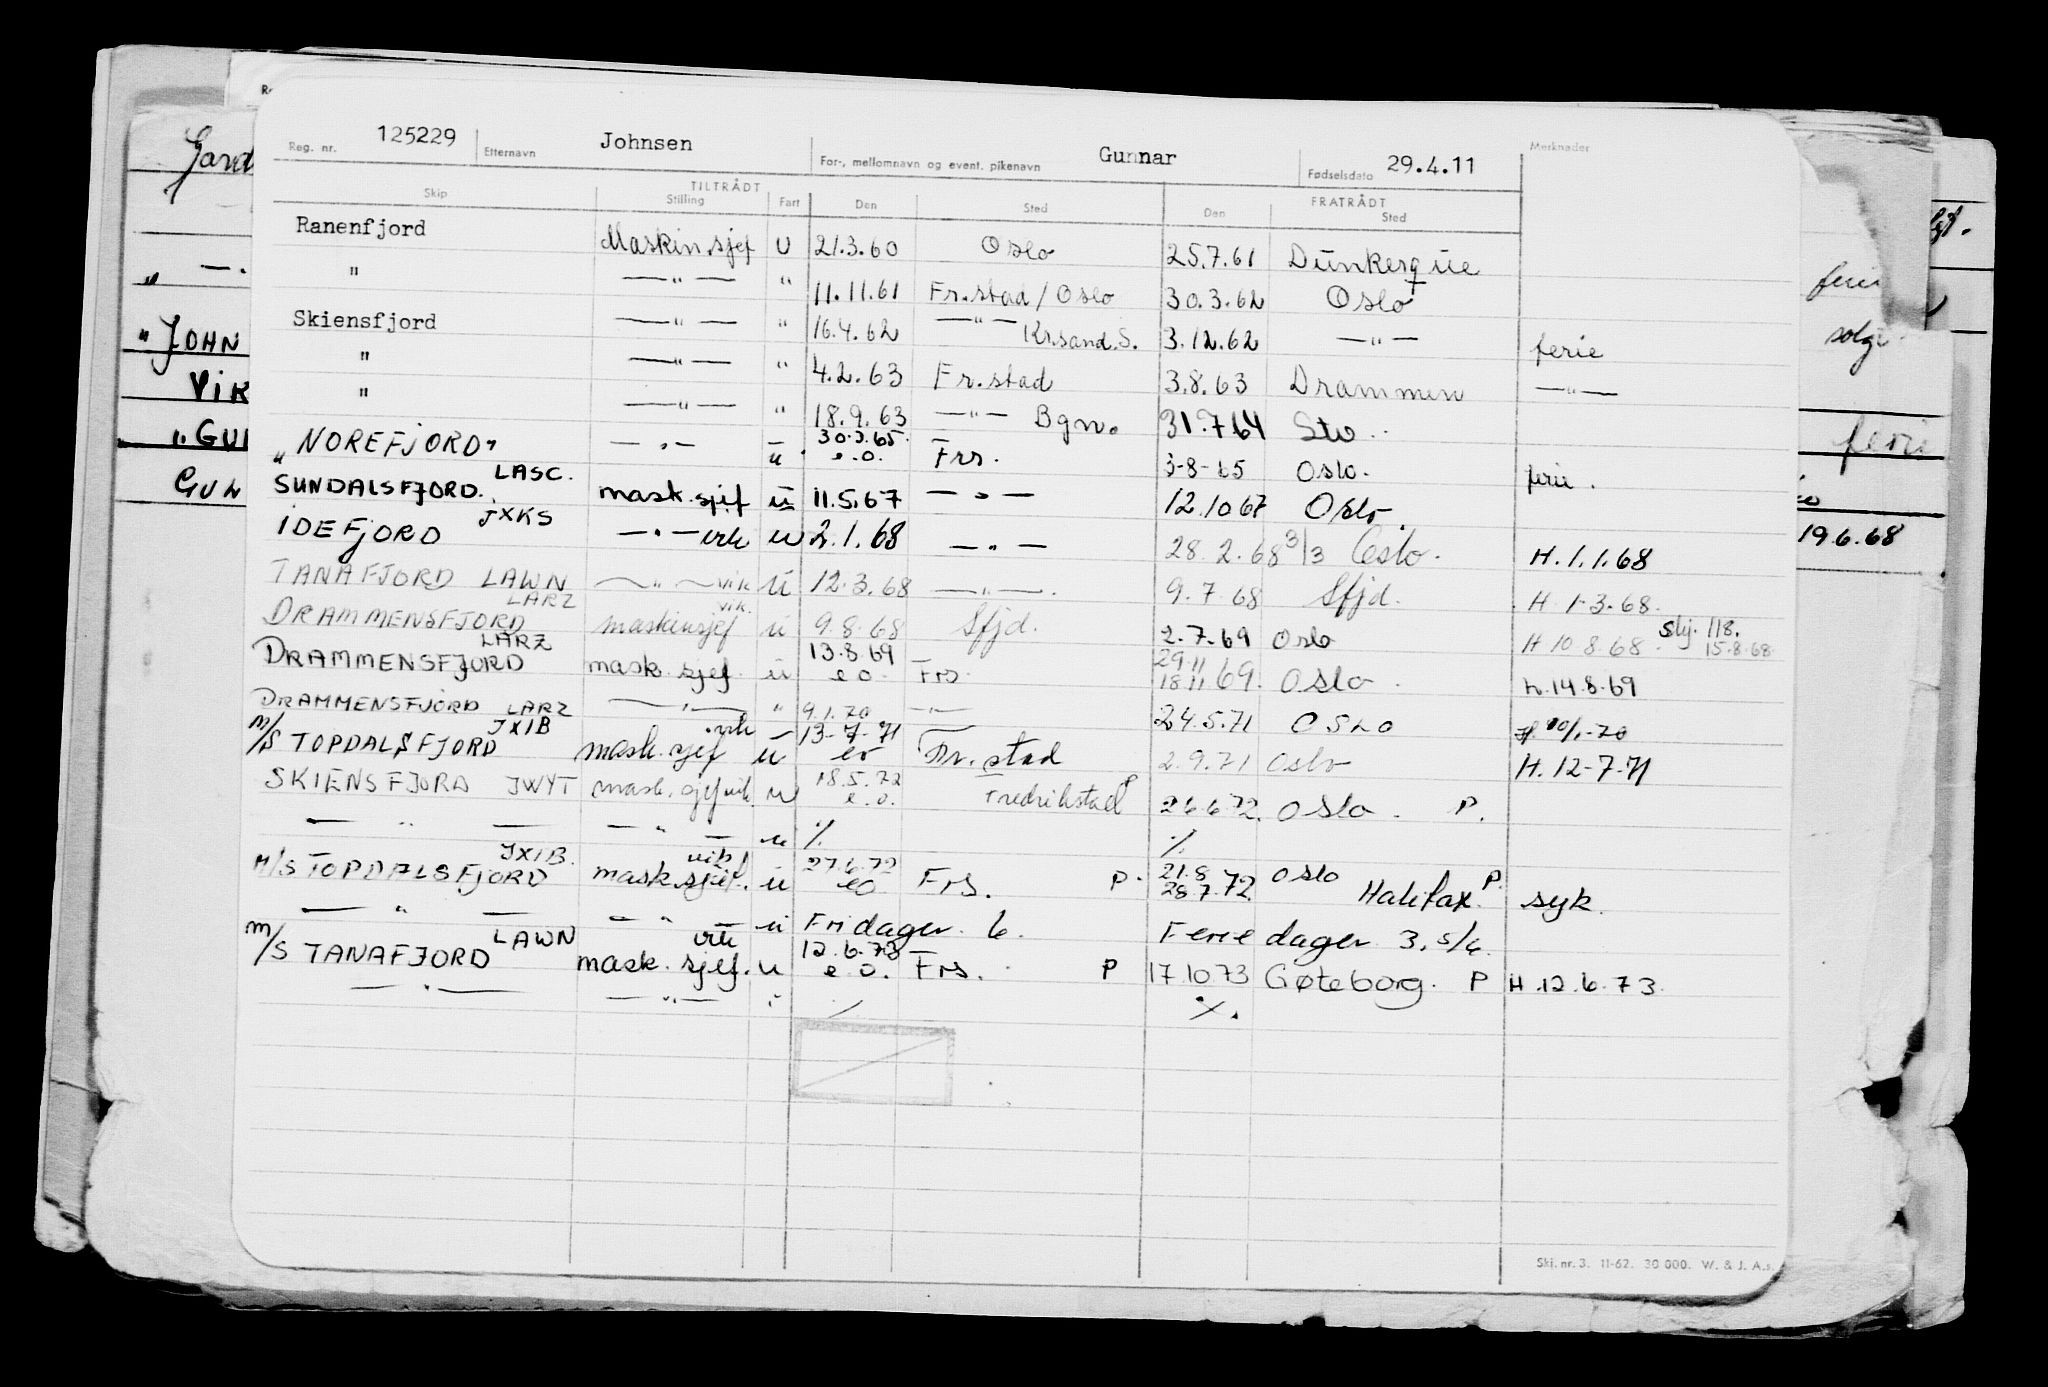 Reg. nr. 125229 Etternavn Johnsen For-, mellomnavn og event. pikenavn Gunnar Fødselsdato 29.4.11 Merknader
TILTRÅDT FRATRÅDT
Skip Stilling Fart Den Sted Den Sted
Ranenfjord Maskinsjef U 21.3.60 Oslo 25.7.61 Dunkerque
" — " — " 11.11.61 Fr.stad / Oslo 30.3.62 Oslo
Skiensfjord — " — " 16.4.62 — " — Kr.sand.S. 3.12.62 — " — ferie
" — " — " 4.2.63 Fr.stad 3.8.63 Drammen — " —
" — " — " 18.9.63 — " — Bgn. 31.7.64 Stv.
"NOREFJORD" — " — u 30.3.65 e.o. Frs. 3-8-65 Oslo. ferie.
SUNDALSFJORD. LASC. mask.sjef u 11.5.67 — " — 12.10 67 Oslo.
IDEFJORD JXKS — " — vik u 2.1.68 — " — 28.2.68 3/3 Oslo. H.1.1.68
TANAFJORD LAWN — " — vik u 12.3.68 — " — . 9.7.68 Sfjd. H 1-3-68.
DRAMMENSFJORD LARZ maskinsjef vik. u 9.8.68 Sfjd. 2.7.69 Oslo H 10 8.68. Skj. 118. 15.8.68
DRAMMENSFJORD LARZ mask. sjef. u 13.8.69 e o. Frs. 29.11 18.11 69. Oslo. h.14.8.69
DRAMMENSFJORD LARZ — " — " 9.1.70 — " — 24.5.71 OSLO H 10/1-70
m/s TOPDALSFJORD JXIB mask. sjef vik u 13-7-71 eo Fr. stad 2.9.71 Oslo H. 12-7-71
SKIENSFJORD JWYT mask. sjef vik u 18.5.72 e.o. Fredrikstad P 26.6.72. Oslo. P.
— " — — " — u % %
M/S TOPDALSFJORD JXIB. mask.sjef. vik u 27.6.72 eo Frs. P. 21.8 28.7.72 Oslo Halifax. P. syk.
— " — — " — u Fridager. 6. Ferie dager 3, 5/6
m/s TANAFJORD LAWN mask. sjef. vik u 12.6.73 e.o. Frs. P 17 10 73 Gøteborg. P H.12.6.73.
— " — — " — " % %.
Skj. nr. 3. 11-62. 30 000. W. & J. A.s.
" JOHN
VIK
"GU
ferie
19.6.68